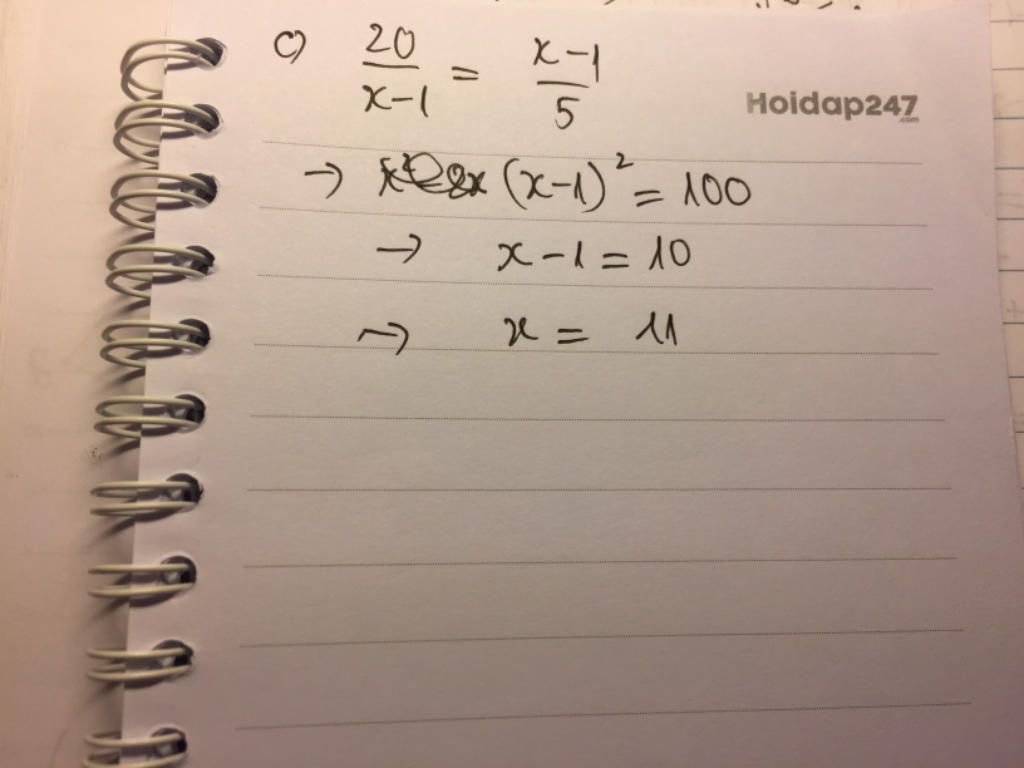 c) 20/(x-1) = (x-1)/5
Hoidap247
.com
→ (x-1)² = 100
→ x-1 = 10
→ x = 11